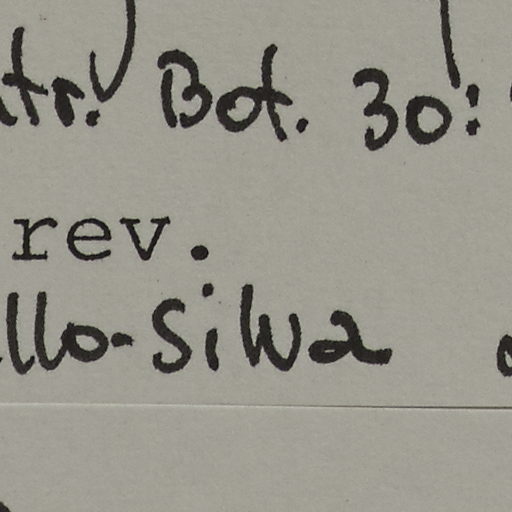 ntr. Bot. 30:
rev.
llo-Silva